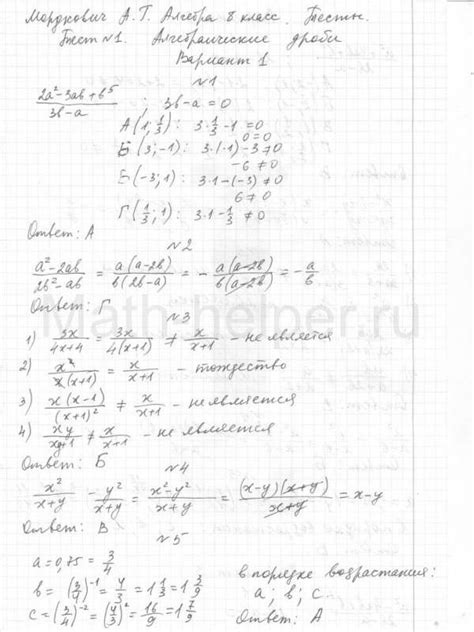 Мордкович А.Г. Алгебра 8 класс. Тесты.
Тест №1. Алгебраические дроби
Вариант 1
№1
(2a² - 3ab + b⁵)/(3b - a) ; 3b - a = 0
А(1; 1/3): 3·1/3 - 1 = 0
0 = 0
Б(3; -1): 3·(-1) - 3 ≠ 0
-6 ≠ 0
В(-3; 1): 3·1 - (-3) ≠ 0
6 ≠ 0
Г(1/3; 1): 3·1 - 1/3 ≠ 0
Ответ: А
№2
(a² - 2ab)/(2b² - ab) = a(a - 2b)/b(2b - a) = - a(a - 2b)/b(a - 2b) = - a/b
Ответ: Г
№3
1) 3x/(4x + 4) = 3x/4(x + 1) ≠ x/(x + 1) - не является
2) x²/x(x + 1) = x/(x + 1) - тождество
3) x(x - 1)/(x + 1)² ≠ x/(x + 1) - не является
4) xy/(xy + 1) ≠ x/(x + 1) - не является
Ответ: Б
№4
x²/(x + y) - y²/(x + y) = (x² - y²)/(x + y) = (x - y)(x + y)/(x + y) = x - y
Ответ: В
№5
a = 0,75 = 3/4
b = (3/4)⁻¹ = 4/3 = 1 1/3 = 1 3/9
c = (3/4)⁻² = (4/3)² = 16/9 = 1 7/9
в порядке возрастания:
a; b; c...
Ответ: А
Math-helper.ru